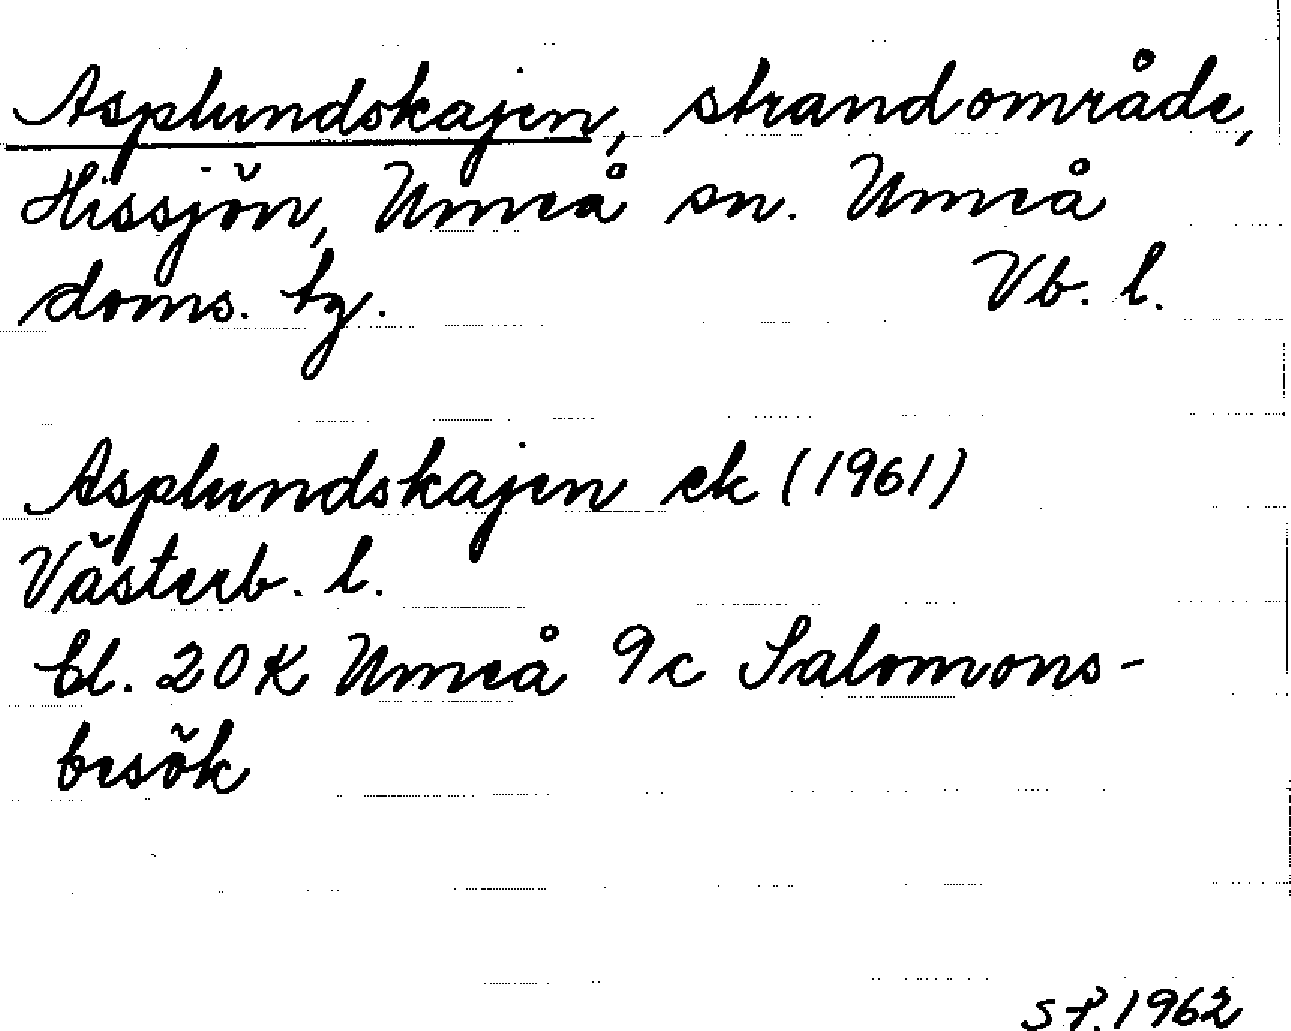 Asplundskajen, strandområde,
Hissjön, Umeå sn. Umeå
doms. tg. Vb. l.
Asplundskajen ek (1961)
Västerb. l.
bl. 20K Umeå 9c Salomons-
besök
1962